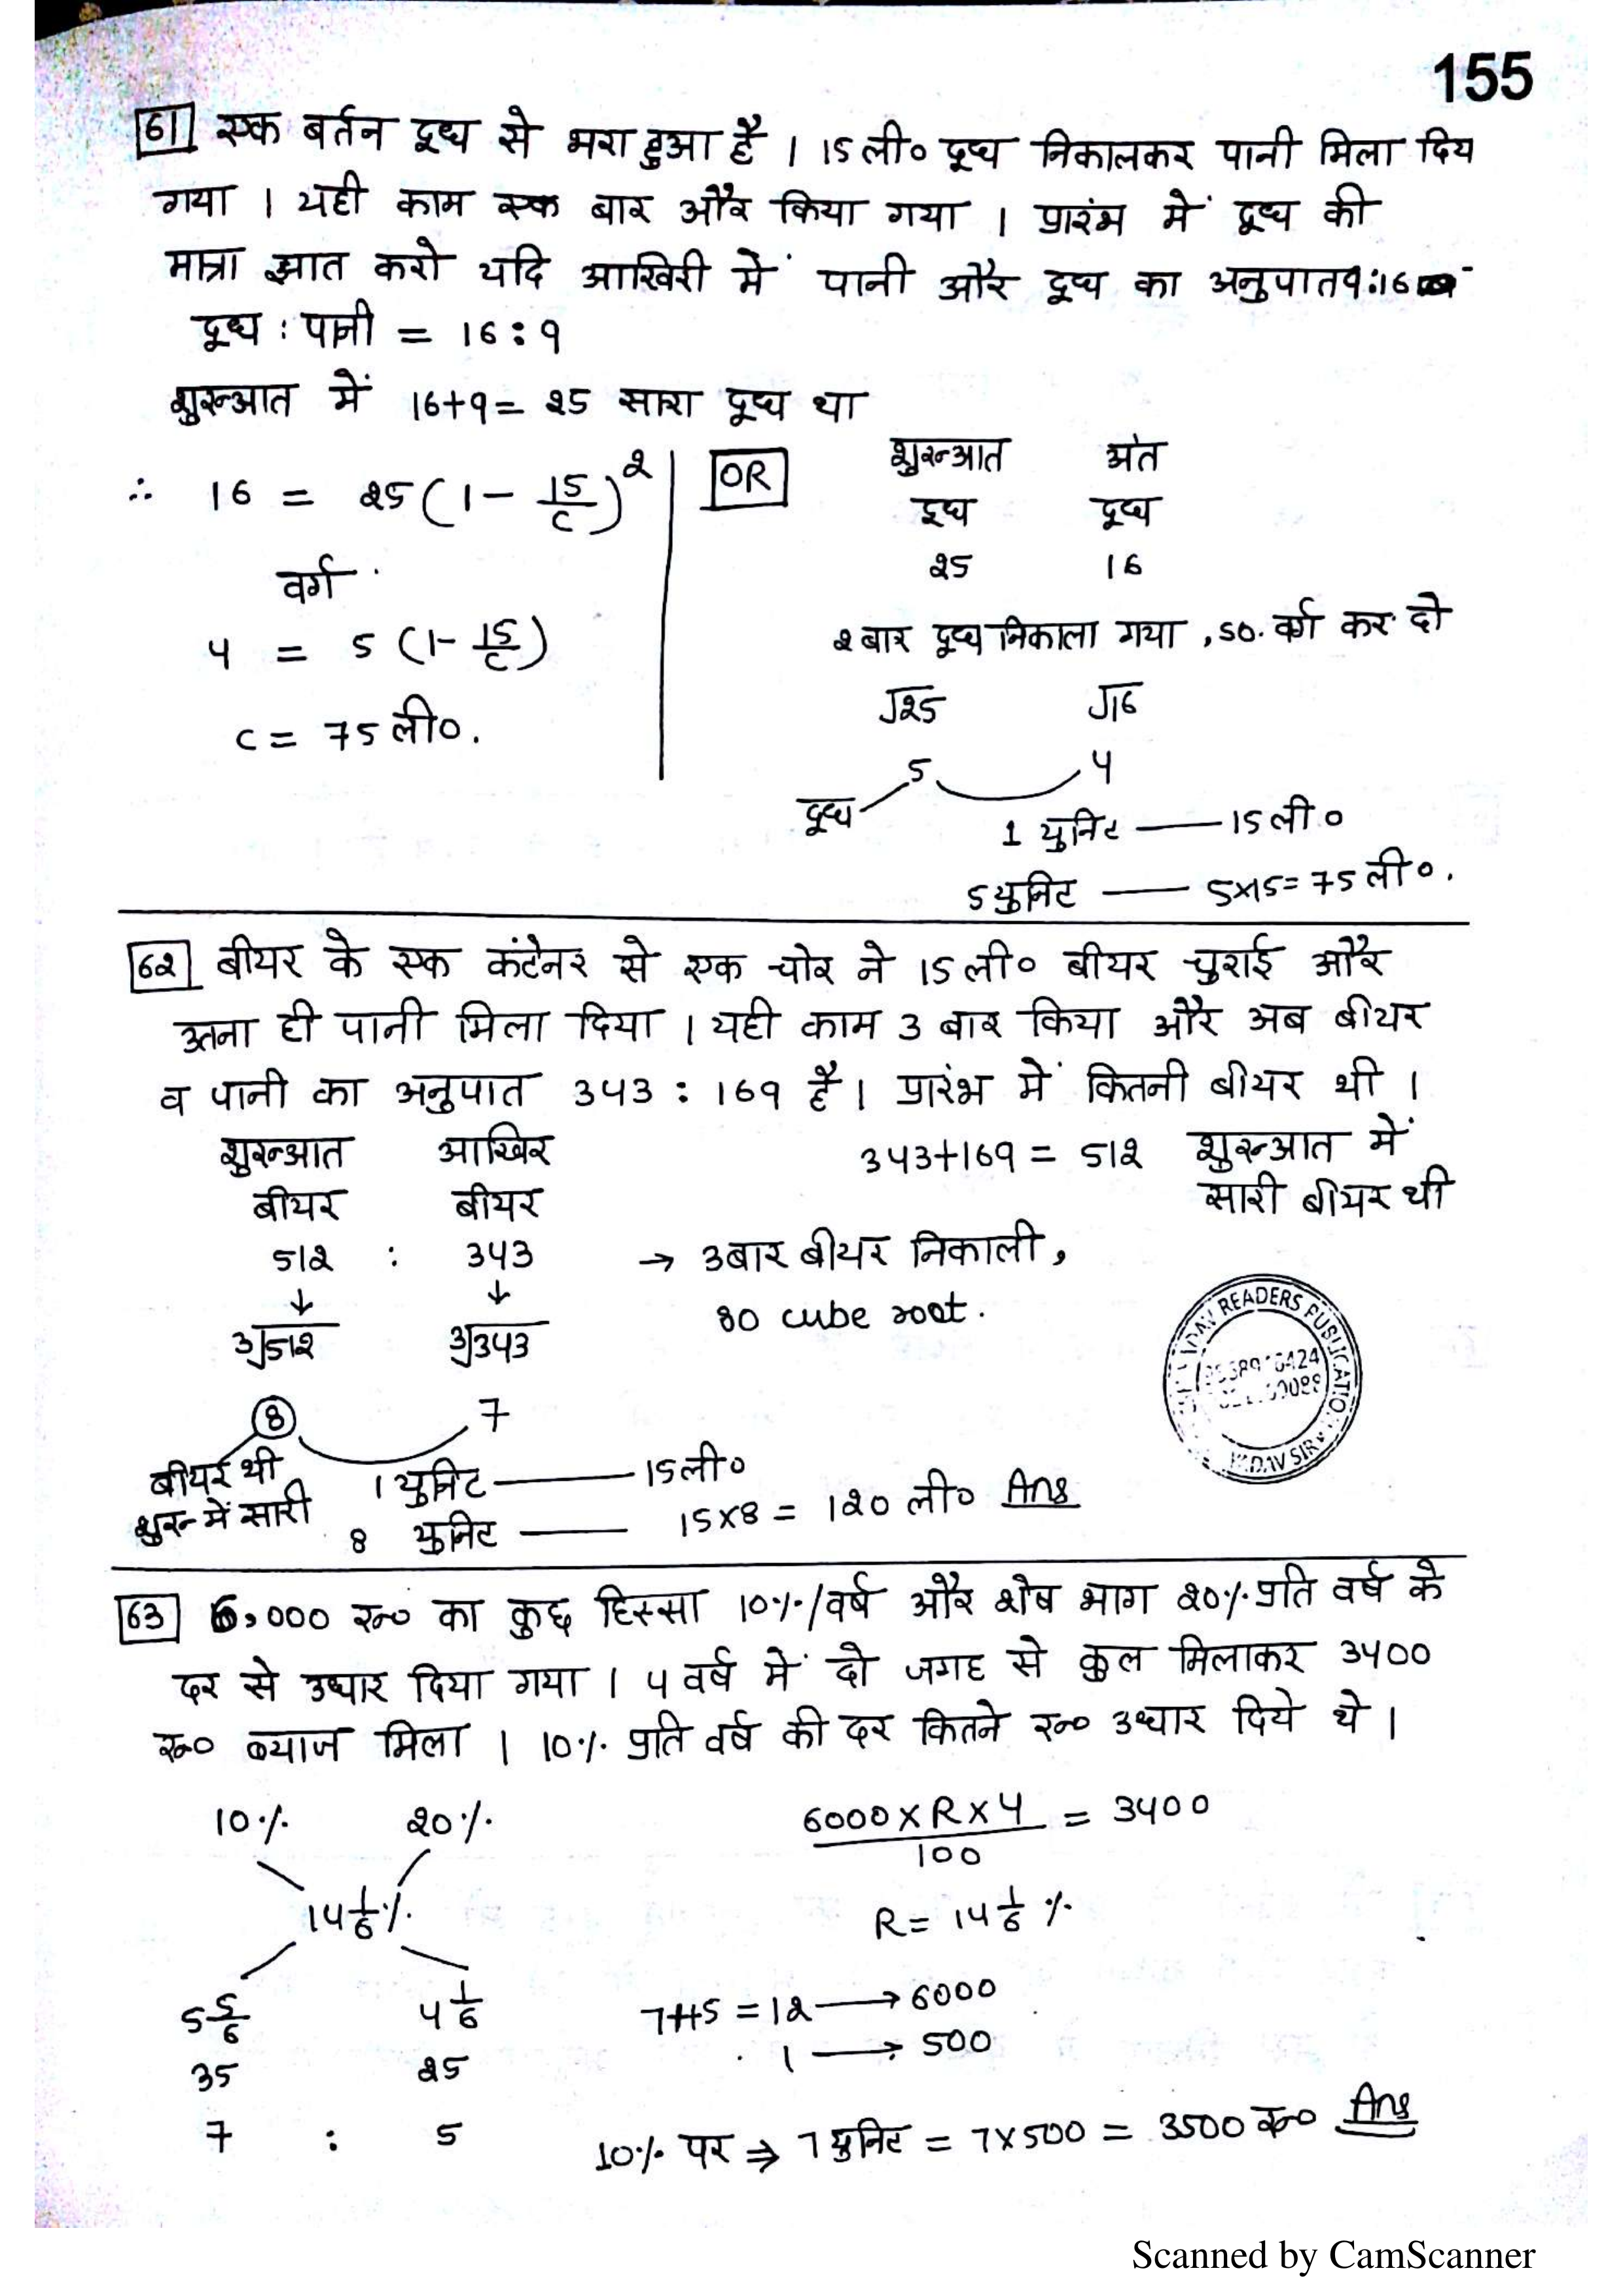 155
61 एक बर्तन दूध से भरा हुआ है । 15 ली० दूध निकालकर पानी मिला दिय
गया । यही काम एक बार और किया गया । प्रारंभ में दूध की
मात्रा ज्ञात करो यदि आखिरी में पानी और दूध का अनुपात 9:16
दूध : पानी = 16 : 9
शुरुआत में 16+9 = 25 सारा दूध था
∴ 16 = 25 (1 - 15/C)²
वर्ग
4 = 5 (1 - 15/C)
C = 75 ली०.
OR
शुरुआत अंत
दूध दूध
25 16
2 बार दूध निकाला गया , so. वर्ग कर दो
√25 √16
5 4
दूध
1 युनिट —— 15 ली०
5 युनिट —— 5×15 = 75 ली०.
62 बीयर के एक कंटेनर से एक चोर ने 15 ली० बीयर चुराई और
उतना ही पानी मिला दिया । यही काम 3 बार किया और अब बीयर
व पानी का अनुपात 343 : 169 है । प्रारंभ में कितनी बीयर थी ।
शुरुआत आखिर
बीयर बीयर
512 : 343
↓ ↓
∛512 ∛343
8 7
343+169 = 512 शुरुआत में
सारी बीयर थी
→ 3 बार बीयर निकाली,
so cube root.
READERS PUBLICATIO
YADAV SIR
बीयर थी
शुरु में सारी
1 युनिट —— 15 ली०
8 युनिट —— 15×8 = 120 ली० Ans
63 6,000 रु० का कुछ हिस्सा 10%/वर्ष और शेष भाग 20% प्रति वर्ष के
दर से उधार दिया गया । 4 वर्ष में दो जगह से कुल मिलाकर 3400
रु० ब्याज मिला । 10% प्रति वर्ष की दर कितने रु० उधार दिये थे ।
10% 20%
14 1/6 %
5 5/6 4 1/6
35 25
7 : 5
6000 × R × 4 / 100 = 3400
R = 14 1/6 %
7+5 = 12 → 6000
1 → 500
10% पर ⇒ 7 युनिट = 7×500 = 3500 रु० Ans
Scanned by CamScanner